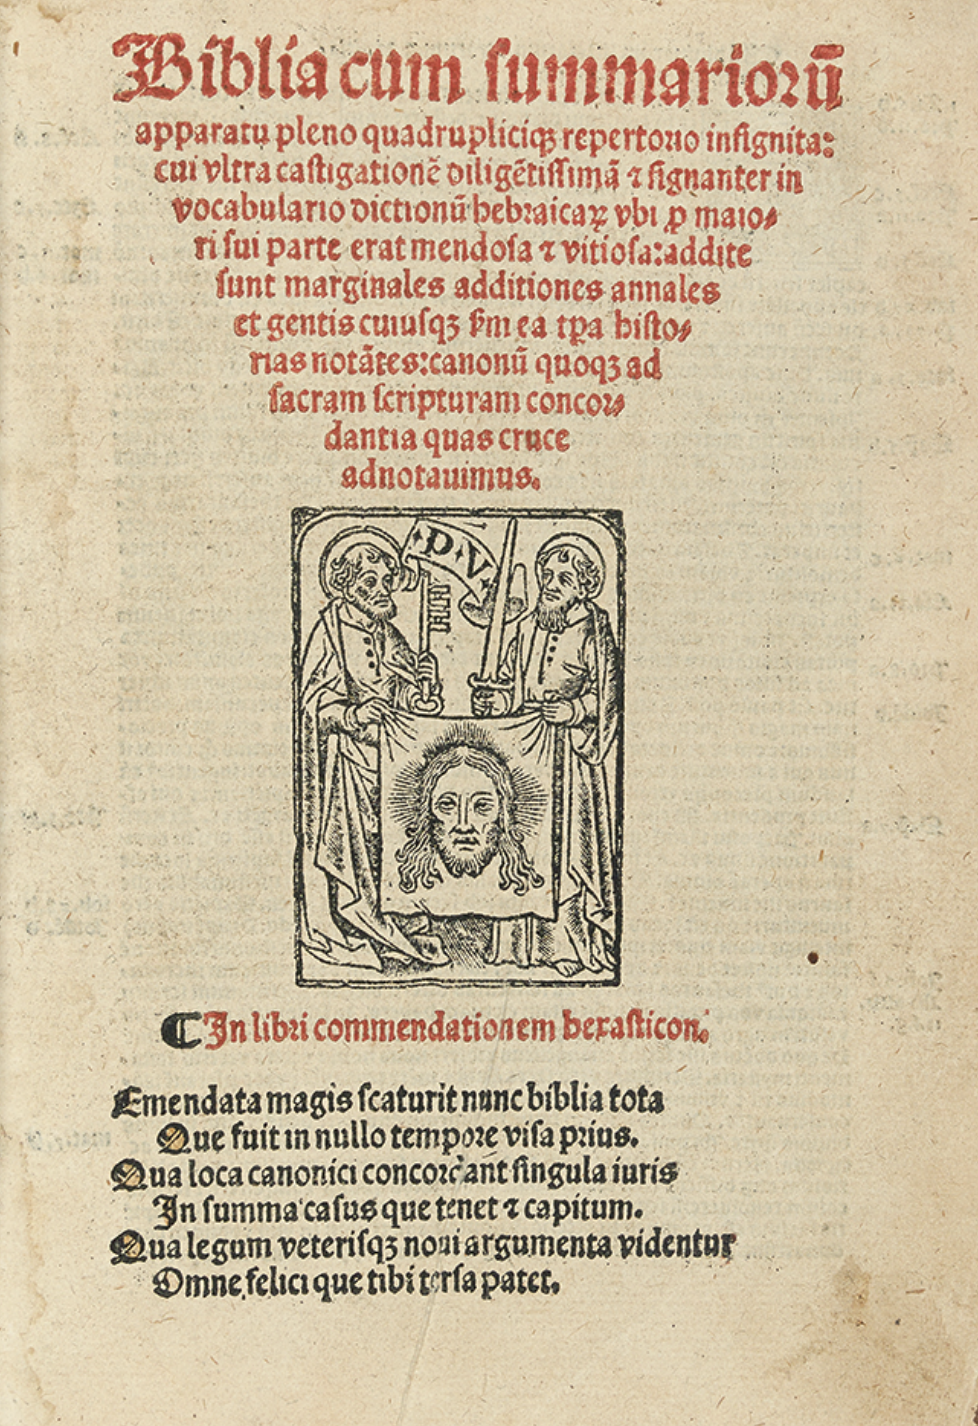 Biblia cum summariorū
apparatu pleno quadrupliciqꝫ repertorio insignita:
cui vltra castigationē diligētissimā ⁊ signanter in
vocabulario dictionū hebraicaꝝ vbi ꝓ maio⸗
ri sui parte erat mendosa ⁊ vitiosa: addite
sunt marginales additiones annales
et gentis cuiusqꝫ ẜm ea tꝑa histo⸗
rias notātes: canonū quoqꝫ ad
sacram scripturam concor⸗
dantia quas cruce
adnotauimus.
·P·V·
¶ In libri commendationem hexasticon.
Emendata magis scaturit nunc biblia tota
Que fuit in nullo tempore visa prius.
Qua loca canonici concordant singula iuris
In summa casus que tenet ⁊ capitum.
Qua legum veterisqꝫ noui argumenta videntur
Omne felici que tibi tersa patet.